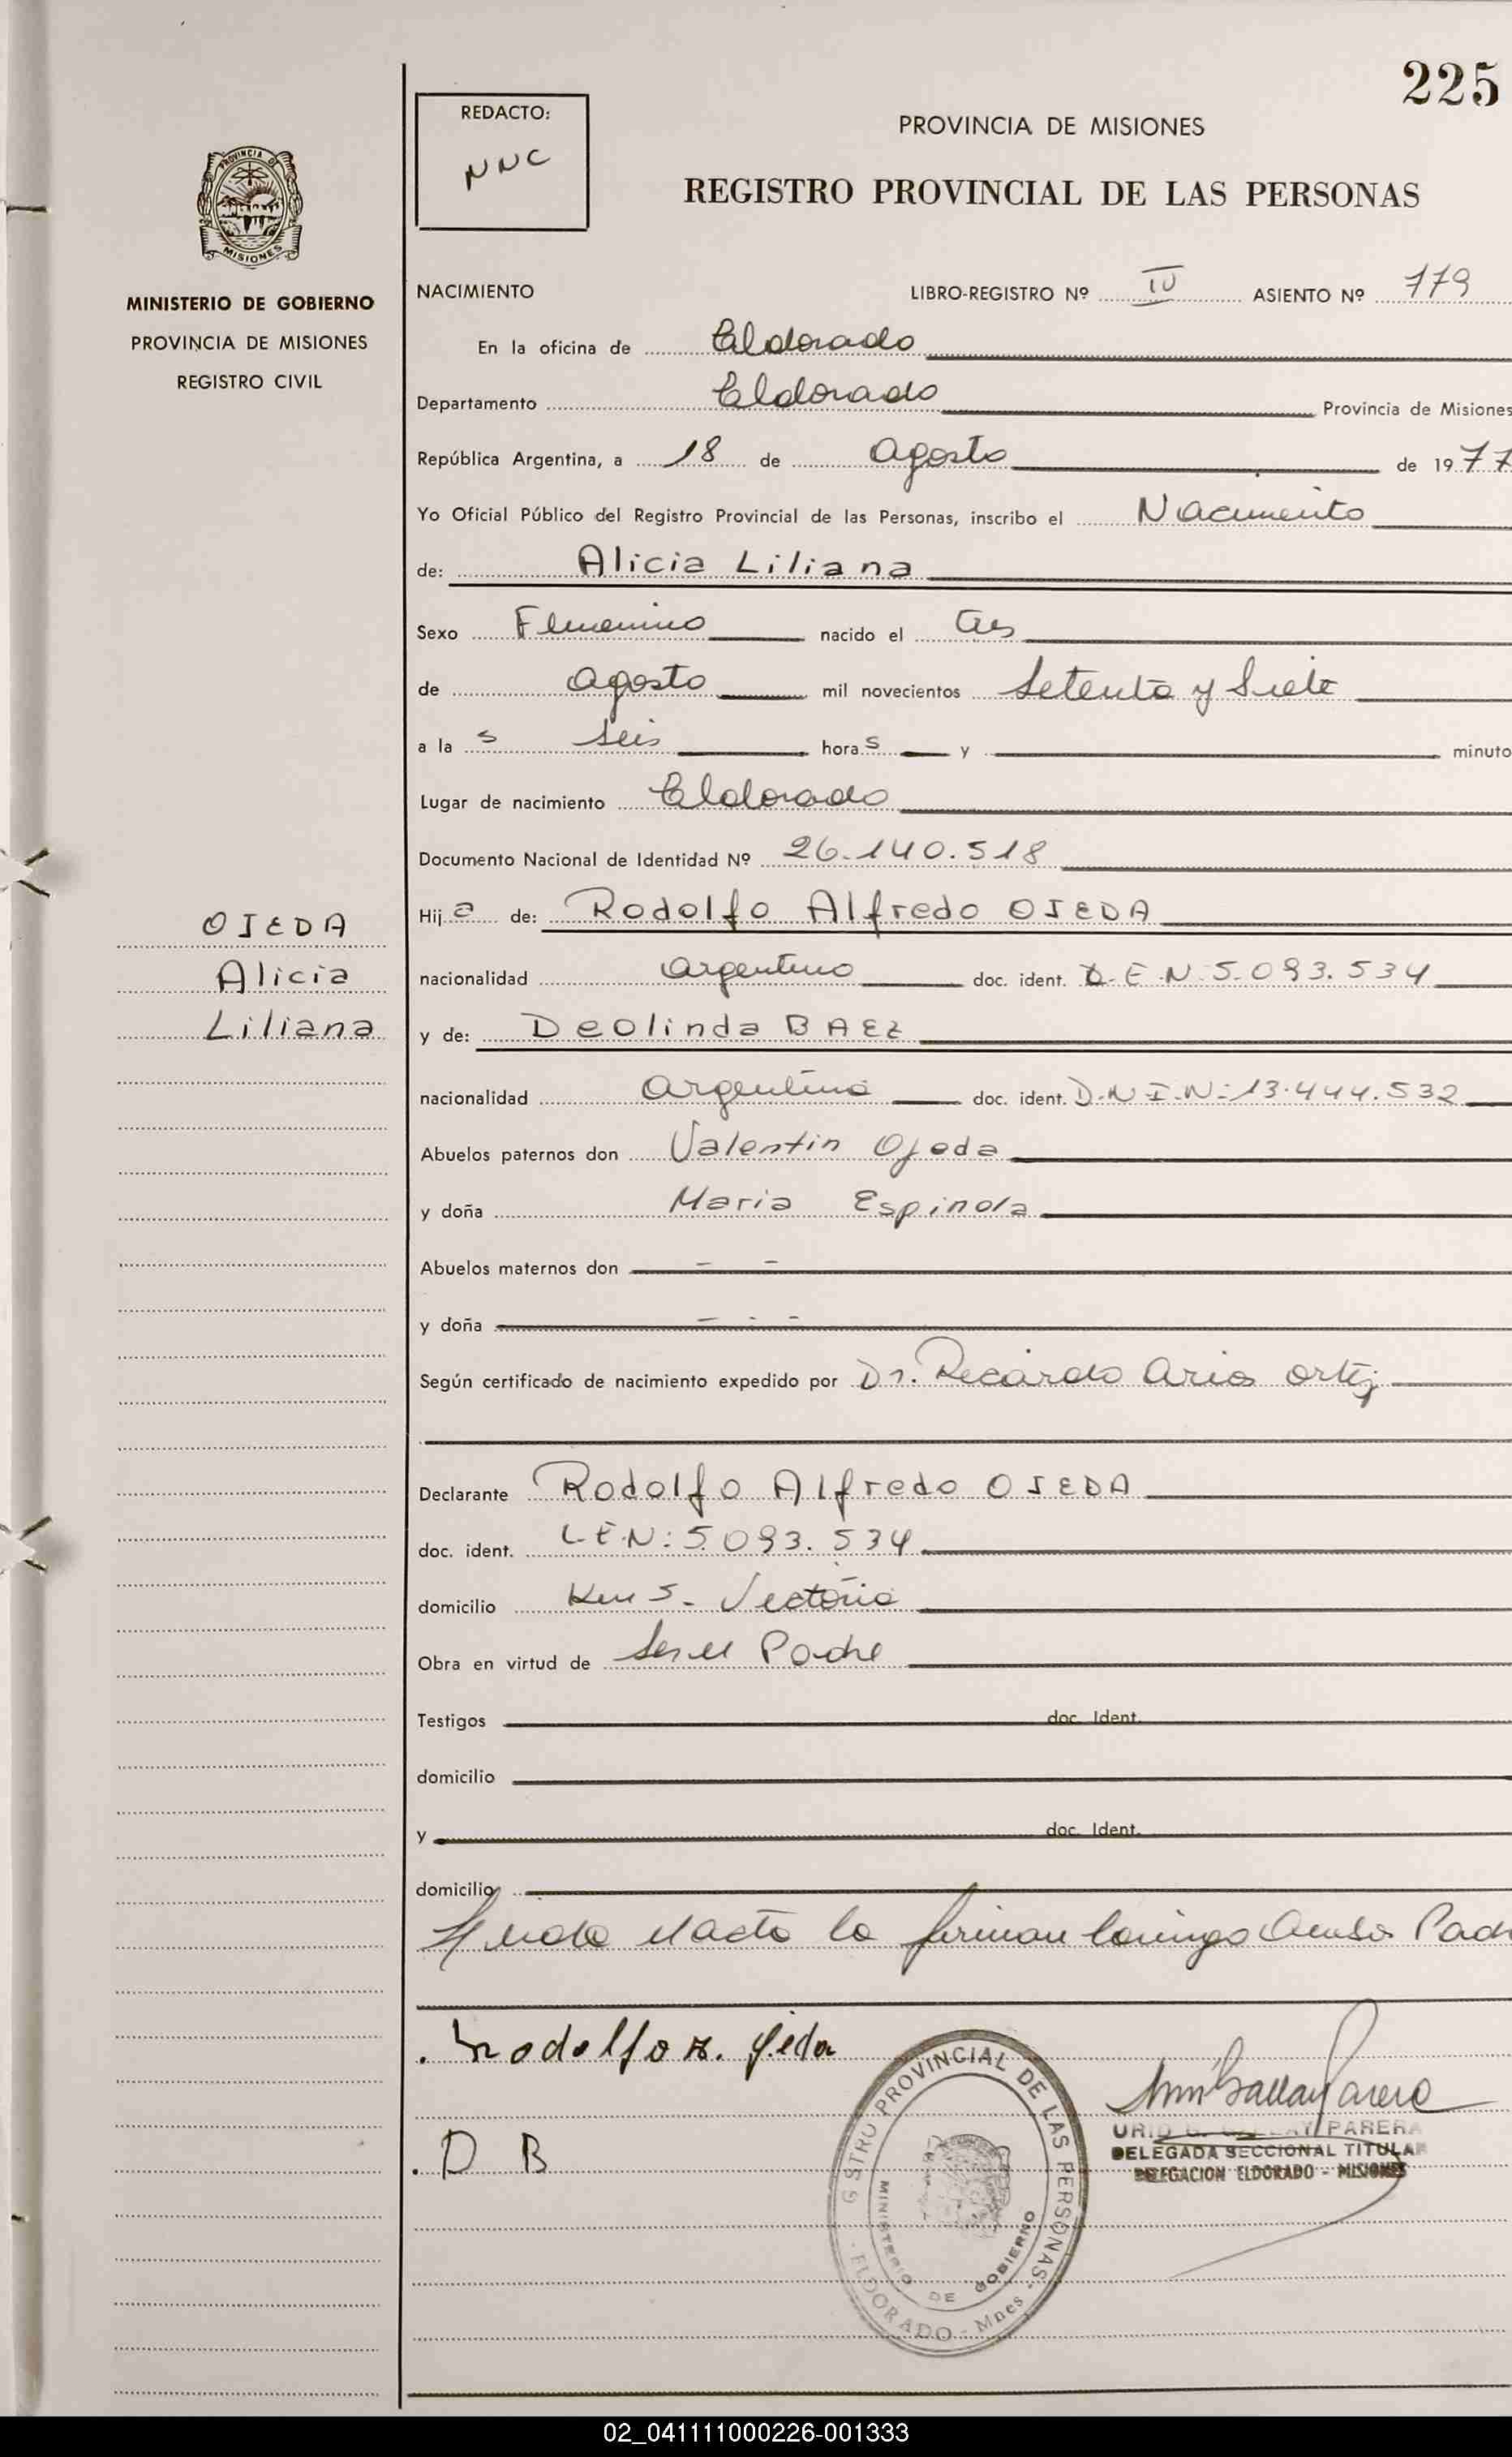 225
REDACTO:
NNC
PROVINCIA DE MISIONES
REGISTRO PROVINCIAL DE LAS PERSONAS
PROVINCIA DE
MISIONES
MINISTERIO DE GOBIERNO
PROVINCIA DE MISIONES
REGISTRO CIVIL
NACIMIENTO LIBRO-REGISTRO Nº IV ASIENTO Nº 779
En la oficina de Eldorado
Departamento Eldorado Provincia de Misiones
República Argentina, a 18 de agosto de 1977
Yo Oficial Público del Registro Provincial de las Personas, inscribo el Nacimiento
de: Alicia Liliana
Sexo Femenino nacido el tres
de agosto mil novecientos Setenta y Siete
a la s seis hora s y minuto
Lugar de nacimiento Eldorado
Documento Nacional de Identidad Nº 26.140.518
OJEDA
Alicia
Liliana
Hij a de: Rodolfo Alfredo OJEDA
nacionalidad argentino doc. ident. L.E.N. 5.093.534
y de: Deolinda BAEZ
nacionalidad argentina doc. ident. D.N.I.N: 13.444.532
Abuelos paternos don Valentin Ojeda
y doña Maria Espinola
Abuelos maternos don - -
y doña - - -
Según certificado de nacimiento expedido por Dr. Ricardo Arias Ortiz
Declarante Rodolfo Alfredo OJEDA
doc. ident. L.E.N: 5.093.534
domicilio Km 5. Victoria
Obra en virtud de Ser el Padre
Testigos doc. Ident.
domicilio
y doc. Ident.
domicilio
el acto lo firman conmigo Ambos Padr
Rodolfo A. Ojeda
D B
PARERA
DELEGADA SECCIONAL TITULAR
DELEGACION ELDORADO - MISIONES
GISTRO PROVINCIAL DE LAS PERSONAS - ELDORADO - Mnes
MINISTERIO DE GOBIERNO
02_041111000226-001333